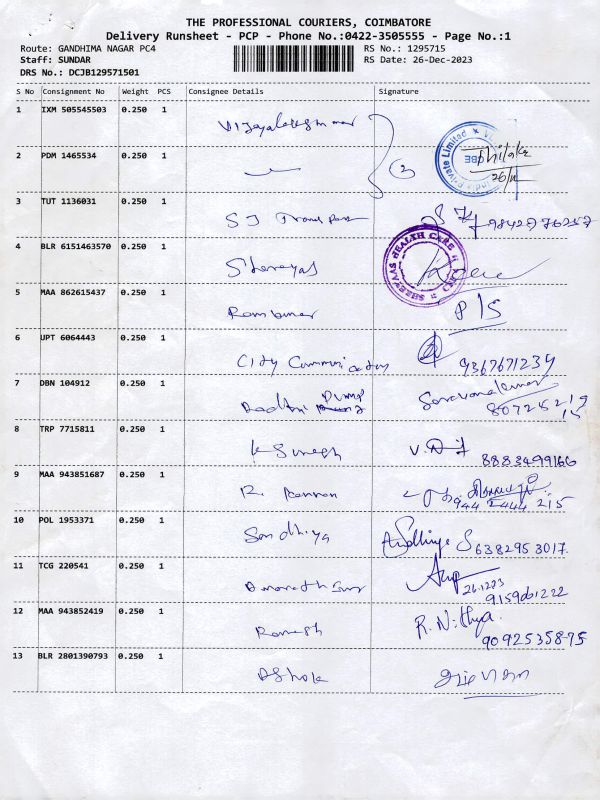 THE PROFESSIONAL COURIERS, COIMBATORE
Delivery Runsheet - PCP - Phone No.:0422-3505555 - Page No.:1
Route: GANDHIMA NAGAR PC4 RS No.: 1295715
Staff: SUNDAR RS Date: 26-Dec-2023
DRS No.: DCJB129571501
S No Consignment No Weight PCS Consignee Details Signature
1 IXM 505545503 0.250 1
2 PDM 1465534 0.250 1 2
3 TUT 1136031 0.250 1 S J Transport 9842776257
SHREYAAS HEALTH CARE
4 BLR 6151463570 0.250 1 Shreyas
5 MAA 862615437 0.250 1 Ramkumar P/S
6 UPT 6064443 0.250 1 City Communication 9367671239
7 DBN 104912 0.250 1 Pump Saravanakumar
8 TRP 7715811 0.250 1 K Suresh 8883499166
9 MAA 943851687 0.250 1 R. Kannan 944 2444 215
10 POL 1953371 0.250 1 Sandhiya 6382953017.
11 TCG 220541 0.250 1 9159001222
12 MAA 943852419 0.250 1 Ramesh R. Nithya. 9092535875
13 BLR 2801390793 0.250 1 Ashok